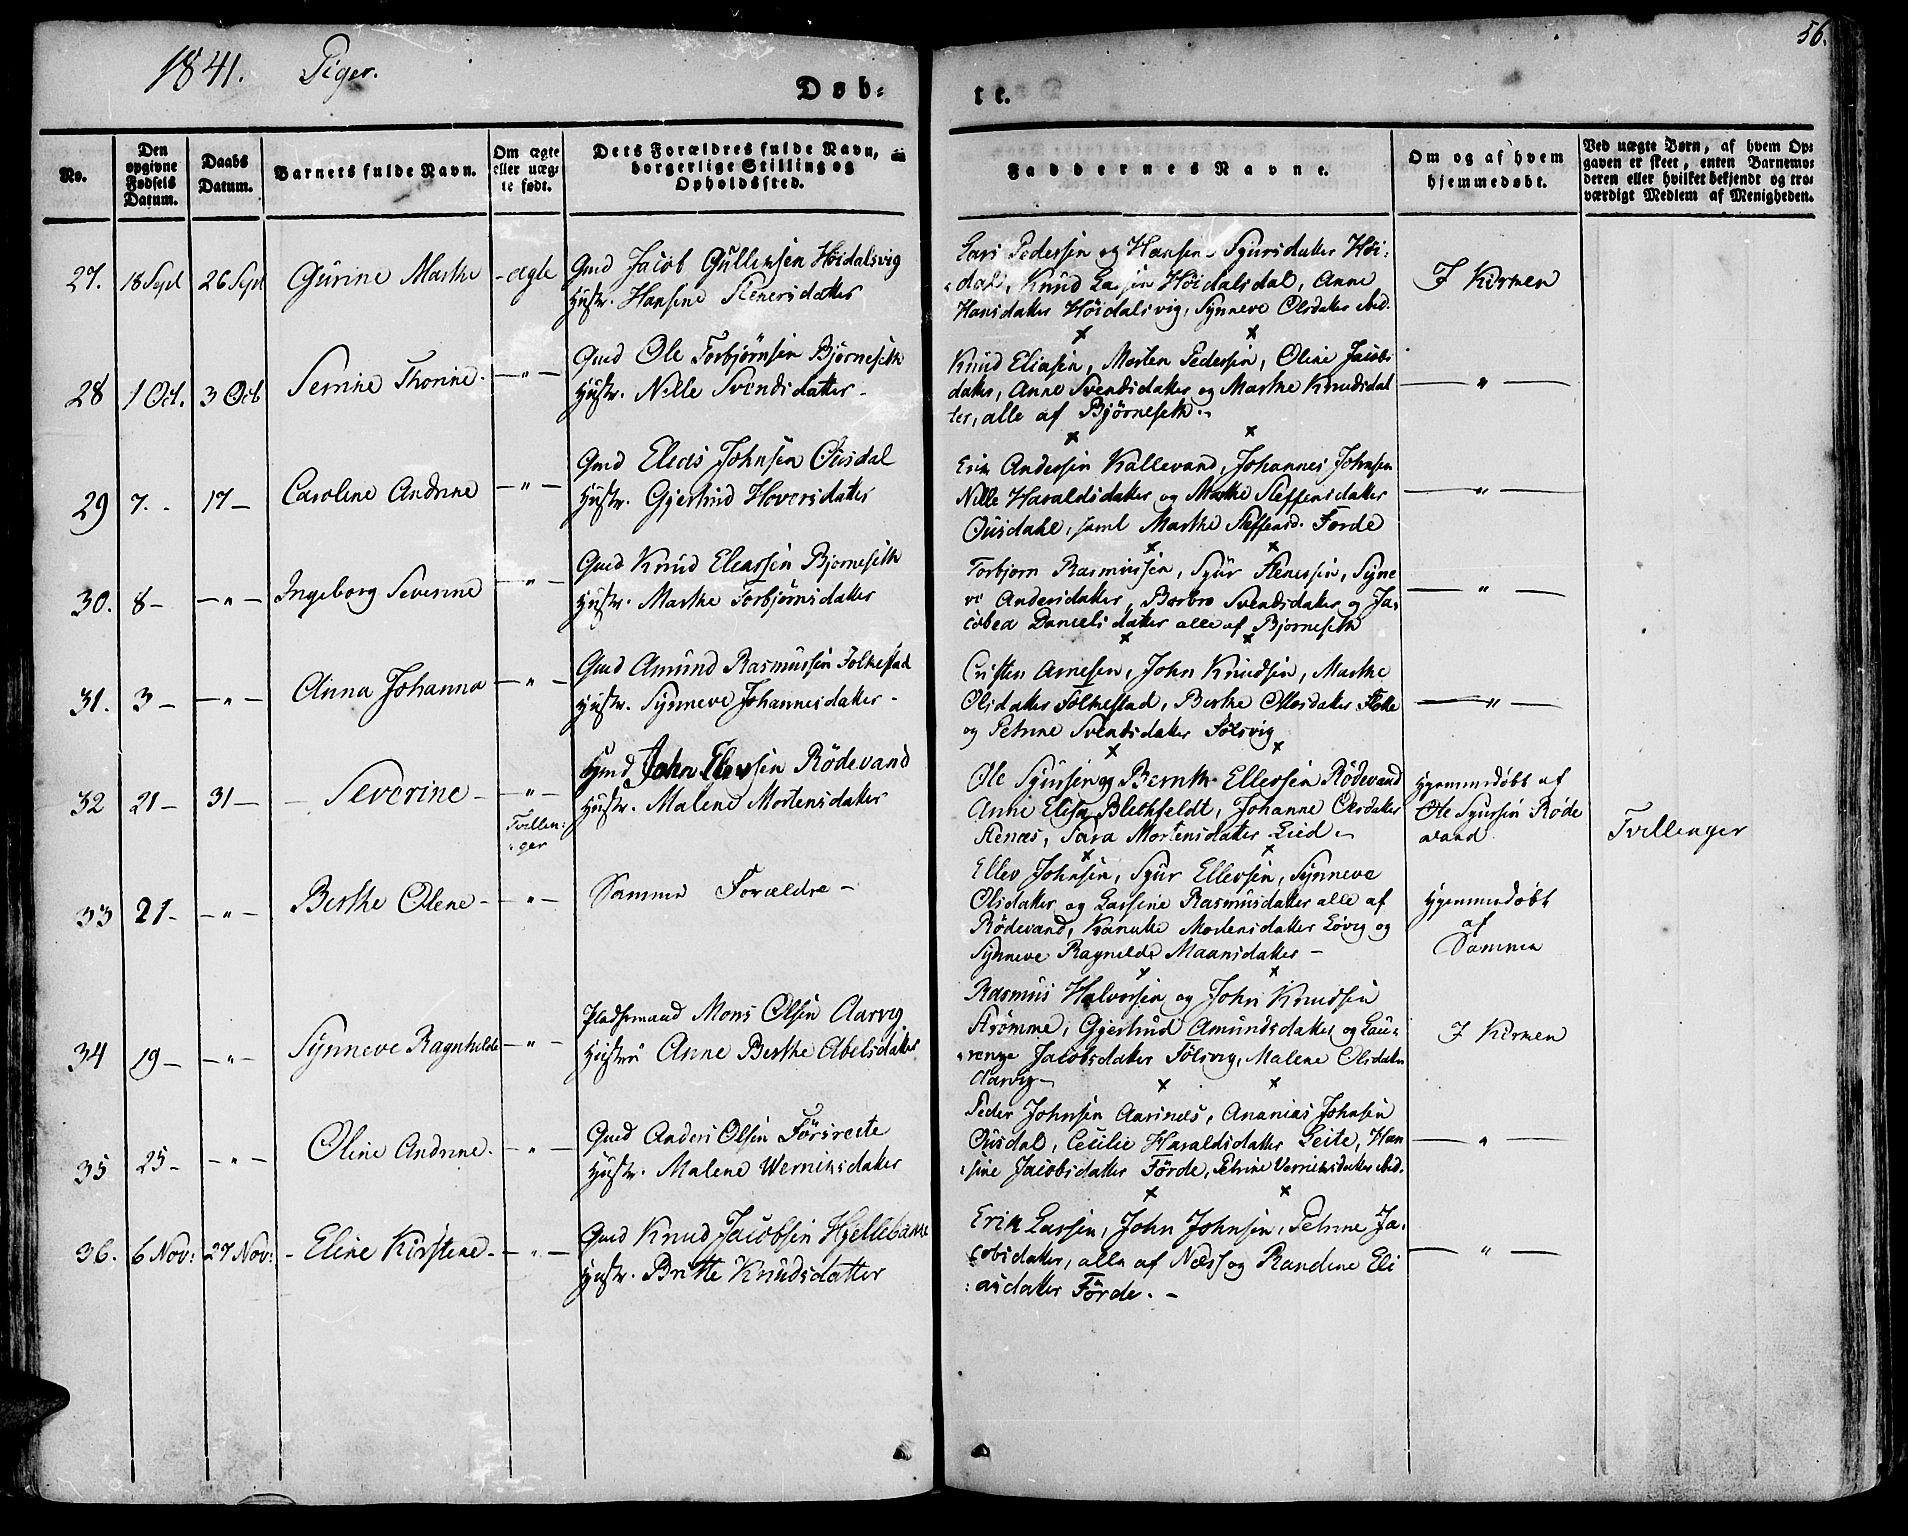 1841. Piger.
56.
Døb-
te.
No.
Den opgivne Fødsels Datum.
Daabs Datum.
Barnets fulde Navn.
Om ægte eller uæg-
te født.
Dets Forældres fulde Navn,
borgerlige Stilling og
Opholdssted.
Faddernes Navne.
Om og af hvem
hjemmedøbt.
Ved uægte Børn, af hvem Op-
gaven er skeet, enten Barnemo-
deren eller hvilket bekjendt og tro-
værdigt Medlem af Menigheden.
27. 18 Sept 26 Sept Gurine Marthe - ægte
Gmd Jacob Gullensen Höidalsvig
Hustr. Hansine Stenersdatter
Lars Pedersen og Hansine Sjursdatter Höi-
dal, Knud Larsen Höidalsdal, Anne
Hansdatter Höidalsvig, Synneve Olsdatter ibid.
I Kirken
28 1 Oct. 3 Oct Serrine Thorine - " -
Gmd Ole Torbjørnsen Bjørneseth
Hustr. Nille Svendsdatter -
Knud Eliasen, Morten Pedersen, Oline Jacobs
datter, Anne Svendsdatter og Marthe Knudsdat
ter, alle af Bjørneseth.
- " -
29 7. - 17 - Caroline Andrine - " -
Gmd Elias Johnsen Ousdal
Hustr. Gjertrud Hoversdatter
Erik Andersen Kallevand, Johannes Johnsen
Nille Haraldsdatter og Marthe Steffensdatter
Ousdahl, samt Marthe Steffensd. Förde
- " -
30. 8 - - " - Ingeborg Severine - " -
Gmd Knud Eleassen Bjorneseth
Hustr. Marthe Torbjörnsdatter
Torbjørn Rasmussen, Sjur Stenessen, Syne
ve Andersdatter, Barbro Svendsdatter og Ja-
cobea Danielsdatter alle af Bjorneseth
" -
31. 3 - - " - Anna Johanna - " -
Gmd Amund Rasmussen Folkestad
Hustr. Synneve Johannesdatter -
Cristen Arnesen, John Knudsen, Marthe
Olsdatter Folkestad, Berthe Olsdatter Flotte
og Petrine Svendsdatter Fölsvig
- " -
32 21 - 31 - - Severine - - " -
Tvillin-
ger
Gmd John Elevsen Rödevand
Hustr. Malene Mortensdatter
Ole Sjursen og Bernth Ellefsen Rödevand
Anne Elisa Blechfeldt, Johanne Olsdatter
Stenæs, Sara Mortensdatter Lied.
Hjemmedøbt af
Ole Sjursen Röde
vand
Tvillinger
33 21 - - " - Berthe Olene - - " -
Samme Forældre -
Ellev Johnsen, Sjur Ellevsen, Synneve
Olsdatter og Larsine Rasmusdatter alle af
Rödevand, Kanutte Mortensdatter Lövig og
Synneve Ragnilde Maansdatter -
Hjemmedøbt
af
Samme
34 19 - - " - Synneve Ragnhilde - " -
Pladsemand Mons Olsen Aarvig
Hustru Anne Berthe Abelsdatter
Rasmus Halvorsen og John Knudsen
Strömme, Gjertrud Amundsdatter og Lau-
renze Jacobsdatter Fölsvig, Malene Olsdatter
Aarvig -
I Kirken
35 25 - - " - Oline Andrine. - " -
Gmd Anders Olsen Förstreite
Hustr. Malene Werniksdatter
Peder Johnsen Aarsnes, Ananias Johnsen
Ousdal, Cecilie Haraldsdatter Leite, Han
sine Jacobsdatter Förde, Petrine Verniksdatter ibid.
- " -
36. 6 Nov: 27 Nov: - Eline Kirstine - - " -
Gmd Knud Jacobsen Hjellebakke
Hustr. Britte Knudsdatter
Erik Larsen, John Johnsen, Petrine Ja-
cobsdatter, alle af Næss og Randine Eli
asdatter Förde. -
- " -